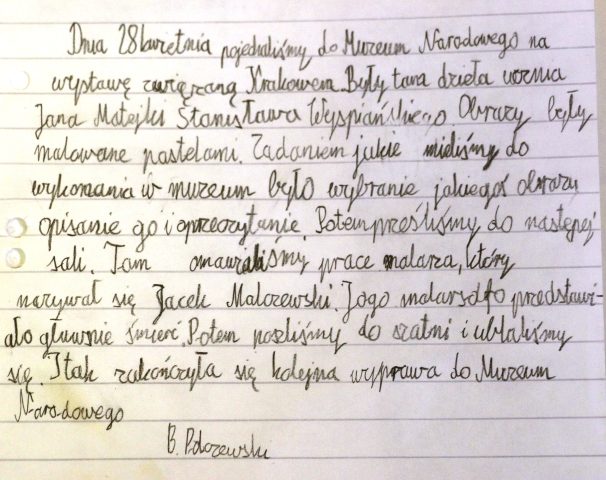 Dnia 28 kwietnia pojechaliśmy do Muzeum Narodowego na
wystawę związaną Krakowem. Były tam dzieła ucznia
Jana Matejki Stanisława Wyspiańskiego. Obrazy były
malowane pastelami. Zadaniem jakie mieliśmy do
wykonania w muzeum było wybranie jakiegoś obrazu
opisanie go i przeczytanie. Potem prześliśmy do następej
sali. Tam omawialiśmy prace malarza, który
nazywał się Jacek Malczewski. Jogo malarsdło przedstawi-
ało głuwnie śmierć. Potem poszliśmy do szatni i ublaliśmy
się. I tak zakończyła się kolejna wyprawa do Muzeum
Narodowego
B.